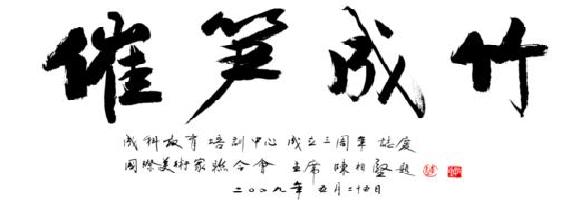 催笋成竹
成科教育培訓中心成立三周年誌慶
國際美術家聯合會 主席 陳相堅題
二〇〇九年 五月二十五日